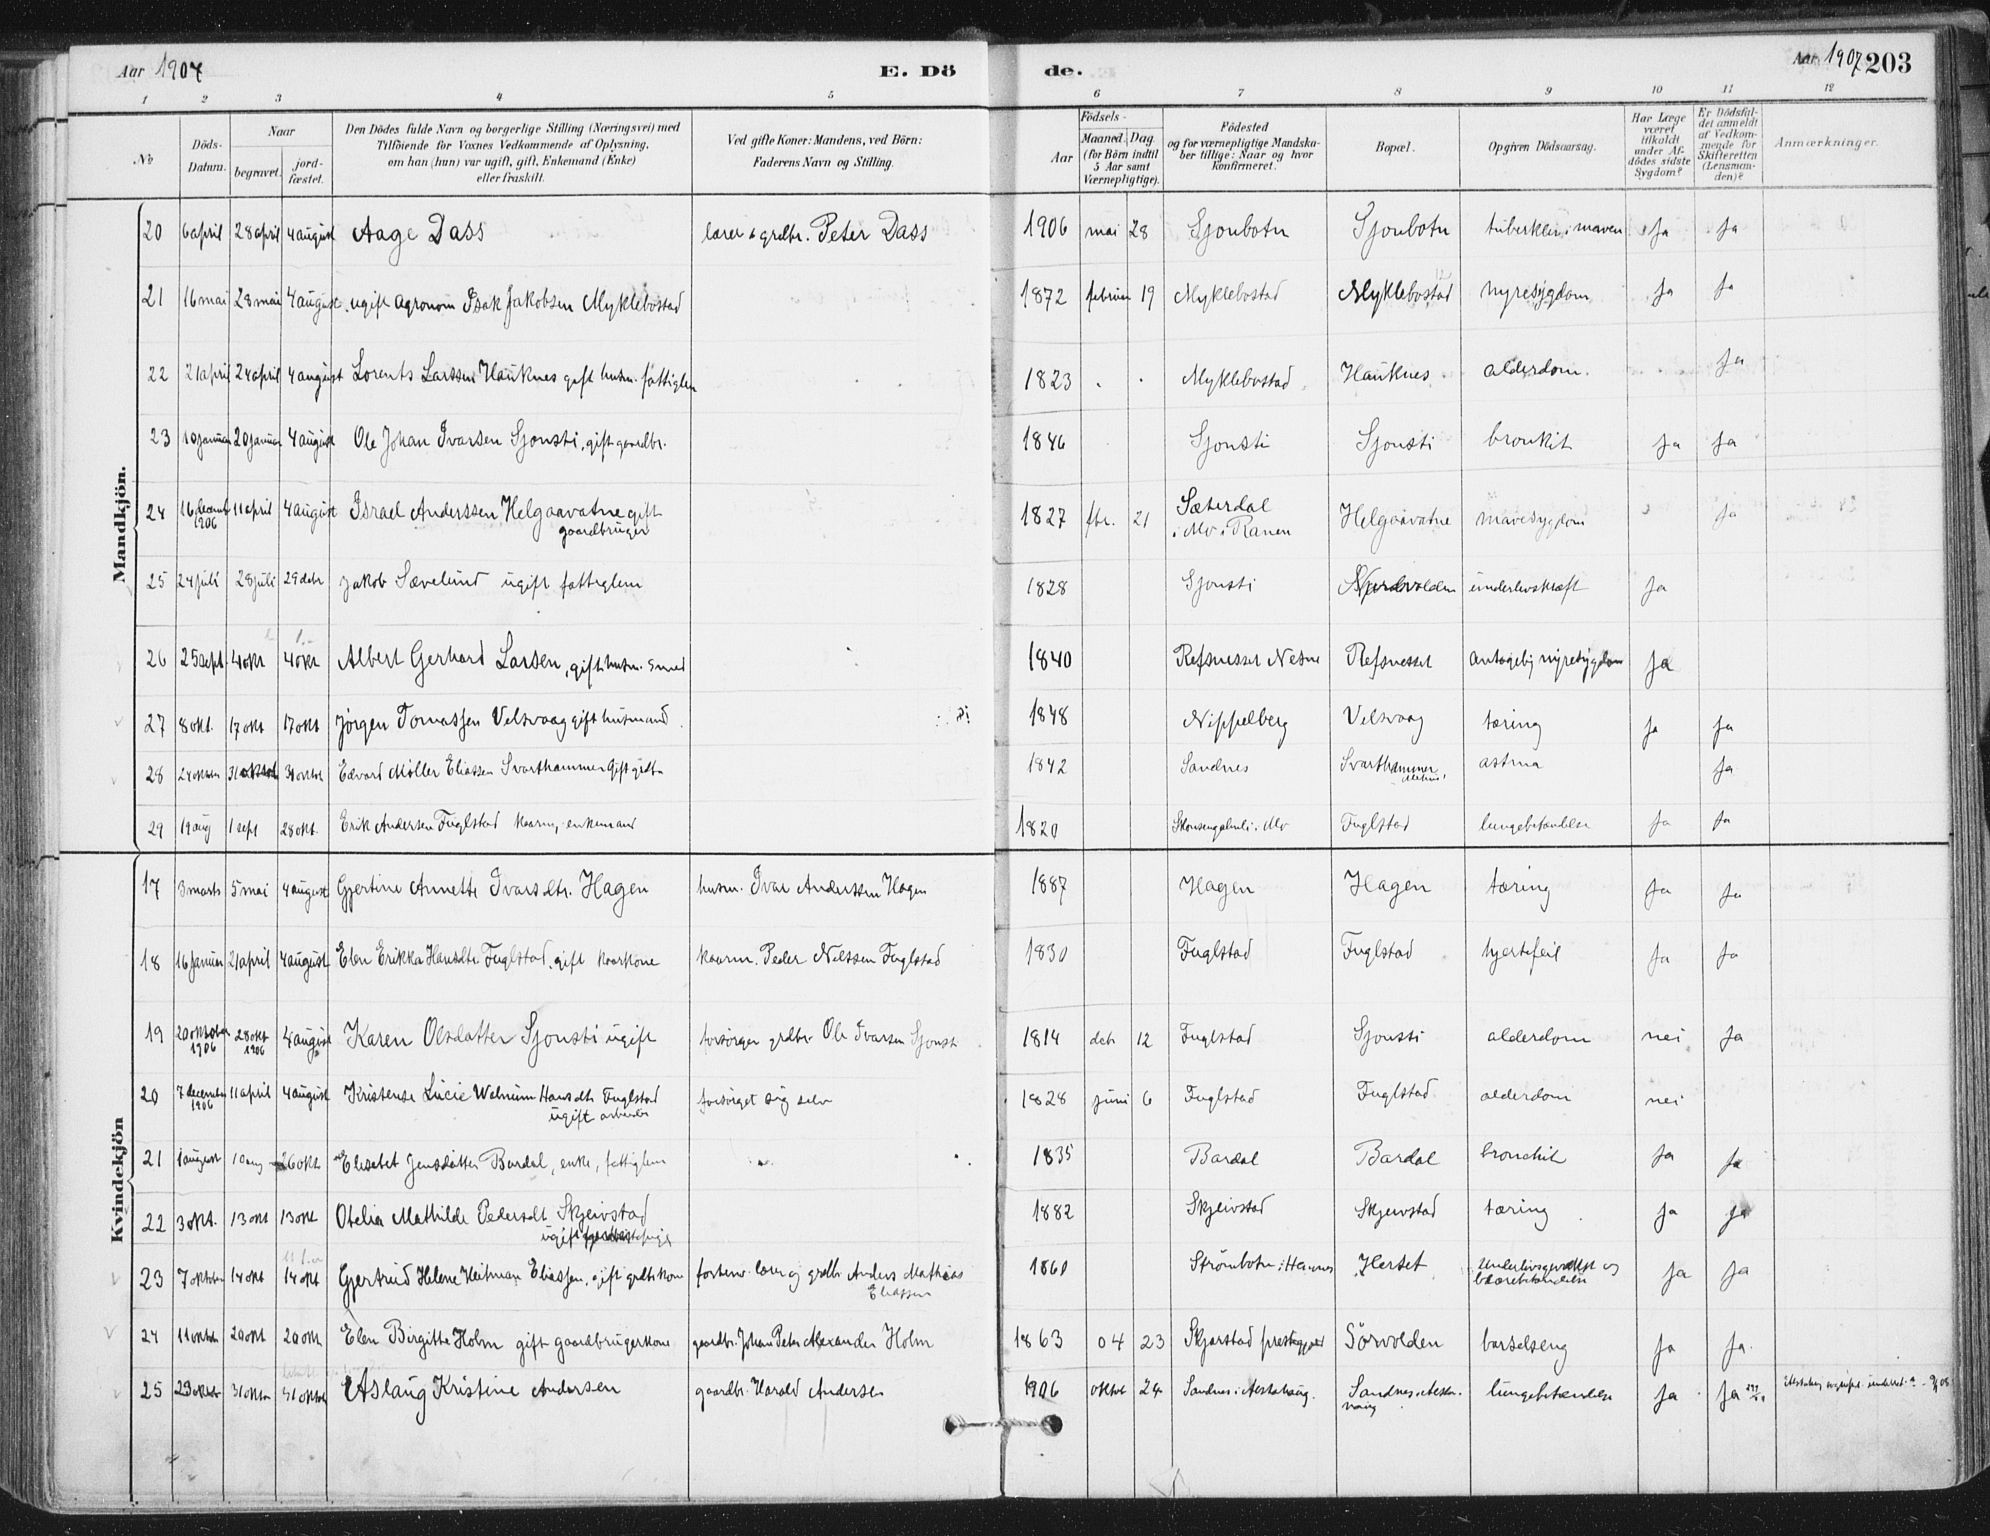 Aar 1907 E. Dö de. Aar 1907 203
1 2 3 4 5 6 7 8 9 10 11 12
No Döds-Datum. Naar begravet. jord-fæstet. Den Dödes fulde Navn og borgerlige Stilling (Næringsvei) med Tilföiende for Voxnes Vedkommende af Oplysning, om han (hun) var ugift, gift, Enkemand (Enke) eller fraskilt. Ved gifte Koner: Mandens, ved Börn: Faderens Navn og Stilling. Aar Födsels- Maaned. Dag. (for Börn indtil 5 Aar samt Værnepligtige). Födested og for værnepligtige Mandskaber tillige: Naar og hvor konfirmeret. Bopæl. Opgiven Dödsaarsag. Har Læge været tilkaldt under Afdödes sidste Sygdom? Er Dödsfaldet anmeldt af Vedkommende for Skifteretten (Lensmanden)? Anmærkninger.
Mandkjön.
20 6 april 28 april 4 august Aage Dass lærer & grdbr. Peter Dass 1906 mai 28 Sjonbotn Sjonbotn tuberkler i maven Ja Ja
21 16 mai 28 mai 4 august ugift agronom Isak Jakobsen Myklebostad 1872 februar 19 Myklebostad Myklebostad nyresygdom Ja Ja
22 21 april 24 april 4 august Lorents Larssen Hauknes gift husm. fattiglem 1823 Myklebostad Hauknes alderdom. Ja
23 10 januar 20 januar 4 august Ole Johan Ivarsen Sjonsti, gift gaardbr. 1846 Sjonsti Sjonsti bronkit Ja Ja
24 16 decemb 1906 11 april 4 august Israel Anderssen Helgaavatne gift gaardbruger 1827 fbr. 21 Sæterdal i Mo i Ranen Helgaavatne mavesygdom Ja
25 24 juli 28 juli 29 decbr Jakob Sævelund ugift fattiglem 1828 Sjonsti underlivskræft Ja
26 25 sept. 4 okt 4 okt Albert Gerhard Larsen, gift husm. smed 1840 Refsnesset Nesne Refsnesset antagelig nyresygdom Ja
27 8 okt. 17 okt 17 okt Jørgen Tomassen Velsvaag gift husmand 1848 Nippelberg Velsvaag tæring Ja Ja
28 24 oktbr 31 oktbr 31 oktbr Edvard Møller Eliassen Svarthammer Gift grdbr 1842 Sandnes Svarthammer astma Ja
29 19 aug 1 sept 28 okt. Erik Andersen Fuglstad kaarm, enkemand 1820 i Mo Fuglstad lungebetændelse Ja Ja
Kvindekjön
17 3 marts 5 mai 4 august Gjertine Annette Ivarsdtr. Hagen husm. Ivar Anderssen Hagen 1887 Hagen Hagen tæring Ja Ja
18 16 januar 21 april 4 august Elen Erikka Hansdtr Fuglstad, gift kaarkone kaarm. Peder Nilssen Fuglstad 1830 Fuglstad Fuglstad hjertefeil Ja Ja
19 20 oktober 1906 28 okt 1906 4 august Karen Olsdatter Sjonsti ugift forsörger grdbr. Ole Ivarsen Sjonsti 1814 dcb 12 Fuglstad Sjonsti alderdom nei Ja
20 7 decembr 1906 11 april 4 august Kristense Lucie Hansdtr Fuglstad ugift forsörget sig selv 1828 juni 6 Fuglstad Fuglstad alderdom nei
21 1 august 10 aug 26 okt Elisabet Jensdatter Bardal, enke, fattiglem 1835 Bardal Bardal bronchit Ja Ja
22 3 okt. 13 okt 13 okt Otelia Mathilde Pedersdt Skjeivstad ugift 1882 Skjeivstad Skjeivstad tæring Ja Ja
23 7 oktober 14 okt 14 okt Gjertrud Helene Heitman Eliassen, gift grdbrkone lærer og grdbr Anders Mathias Eliassen 1860 Strömbotn i Hemnes underlivs og blærebetændelse Ja Ja
24 11 oktbr 20 okt 20 okt Elen Birgitte Holm gift gaardbrugerkone gaardbr. Johan Peter Alexander Holm 1863 04 23 Sörvolden barselseng Ja Ja
25 23 oktbr 31 oktbr 31 oktbr Aslaug Kristine Andersen gaardbr. Harald Andersen 1906 oktbr 24 Sandnes i Alstahaug. Sandnes i lungebetændelse Ja Ja